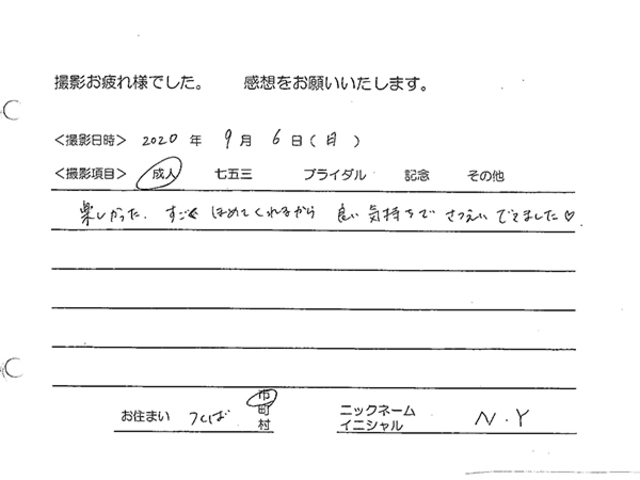 撮影お疲れ様でした。 感想をお願いいたします。
<撮影日時> 2020 年 9 月 6 日 ( 日 )
<撮影項目> 成人 七五三 ブライダル 記念 その他
楽しかった。すごく ほめてくれるから 良い 気持ちで さつえい できました♡
お住まい つくば 市 町 村 ニックネーム イニシャル N.Y